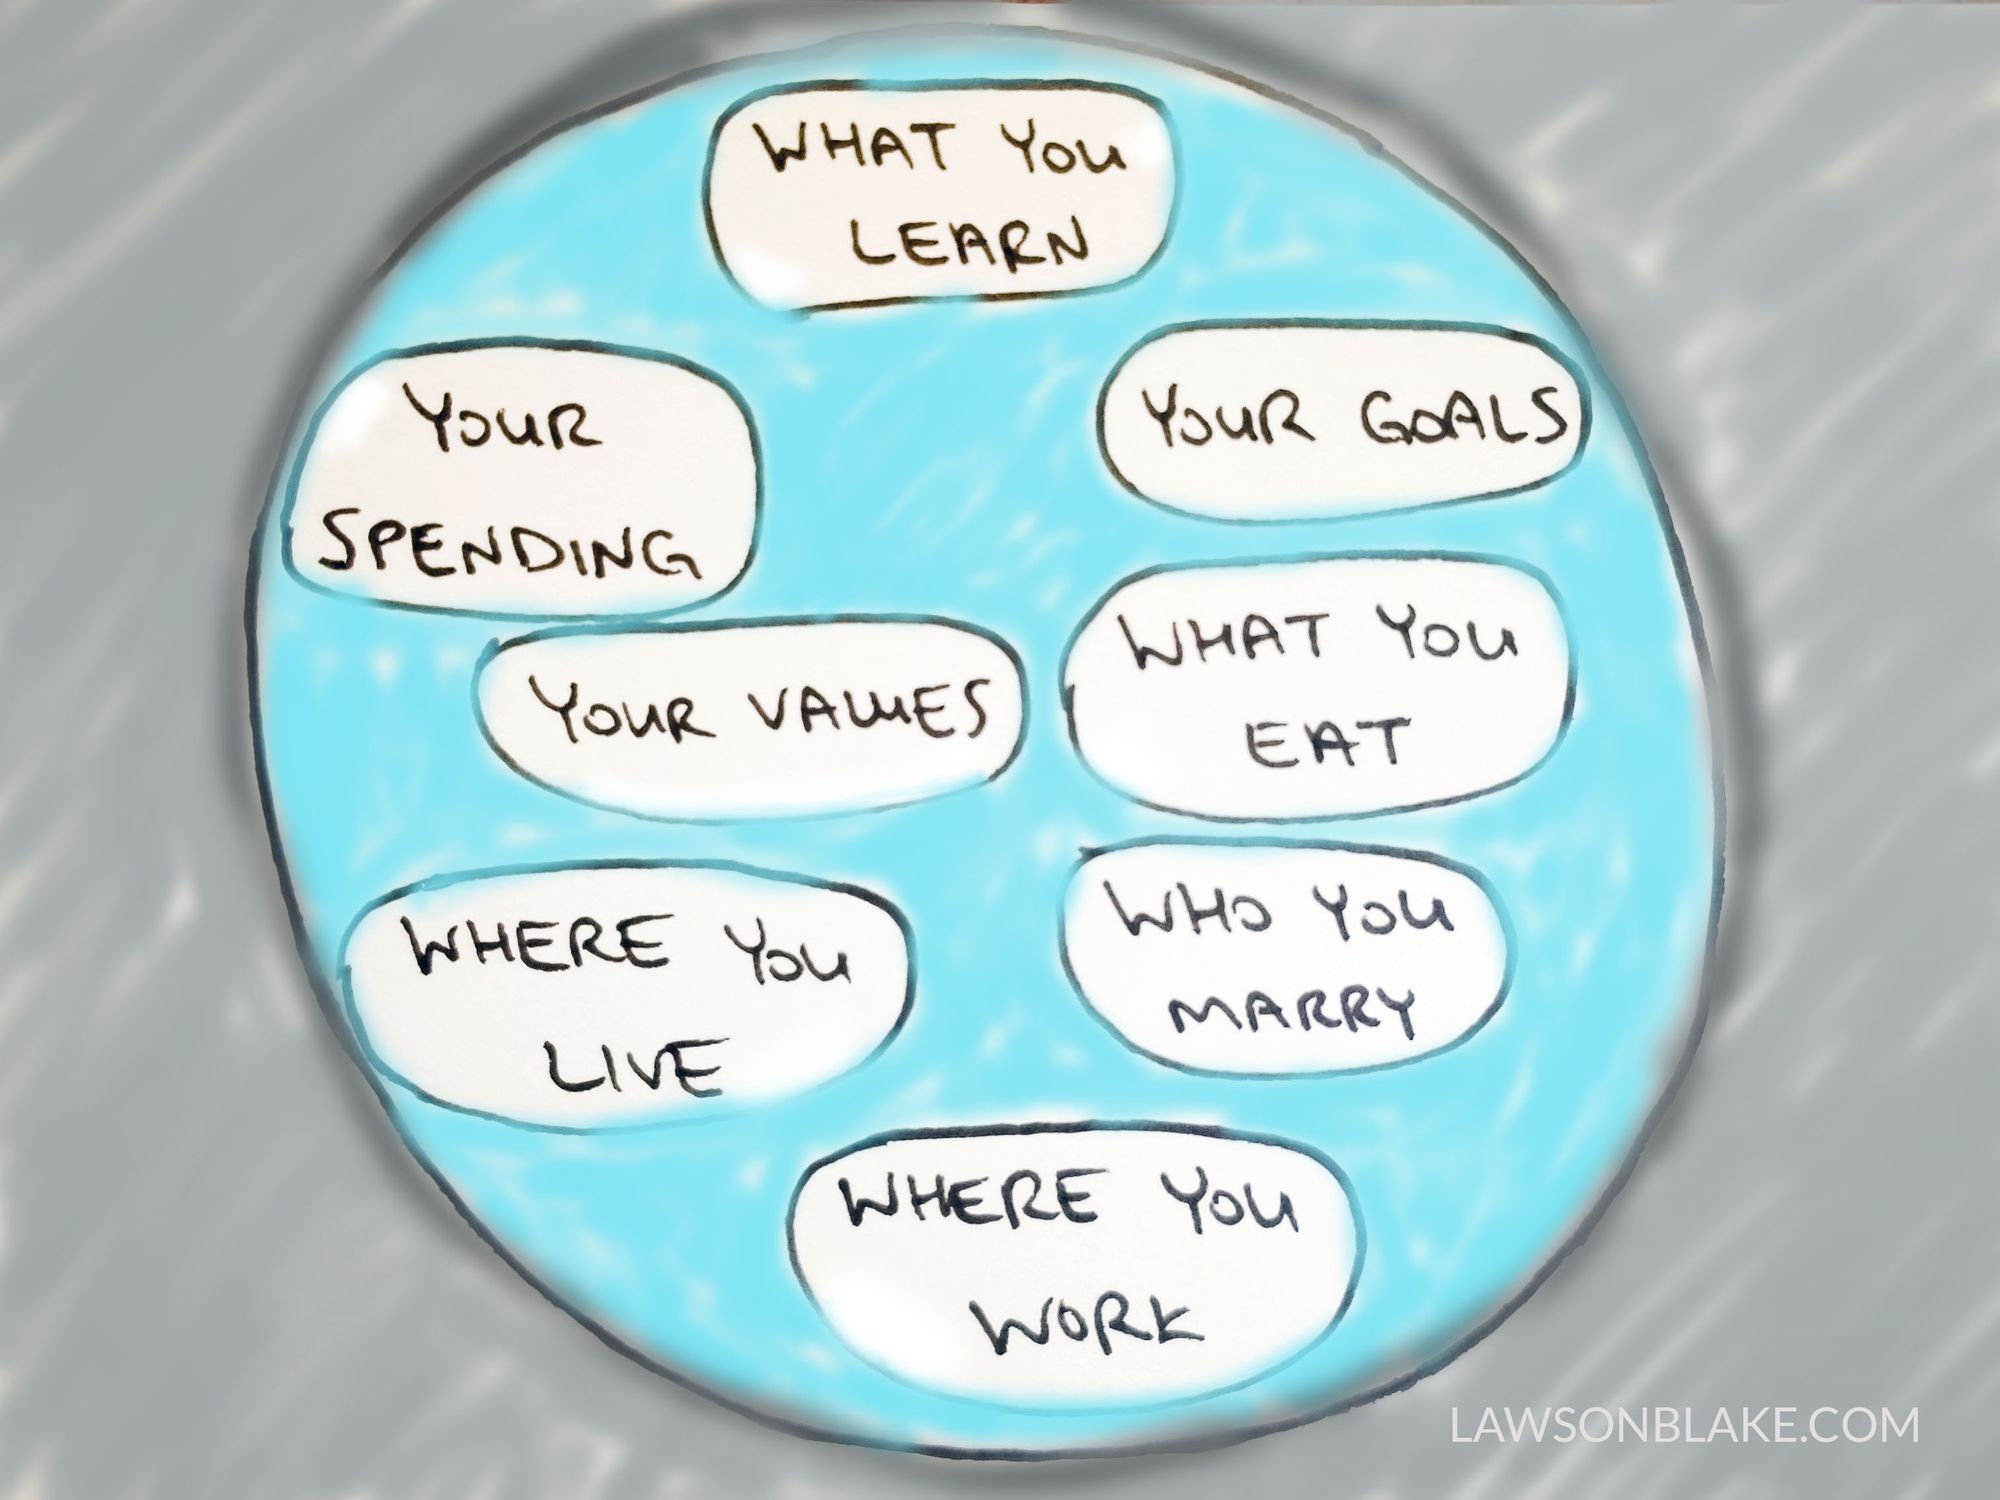 WHAT YOU
LEARN
YOUR
SPENDING
YOUR GOALS
YOUR VALUES
WHAT YOU
EAT
WHERE YOU
LIVE
WHO YOU
MARRY
WHERE YOU
WORK
LAWSONBLAKE.COM